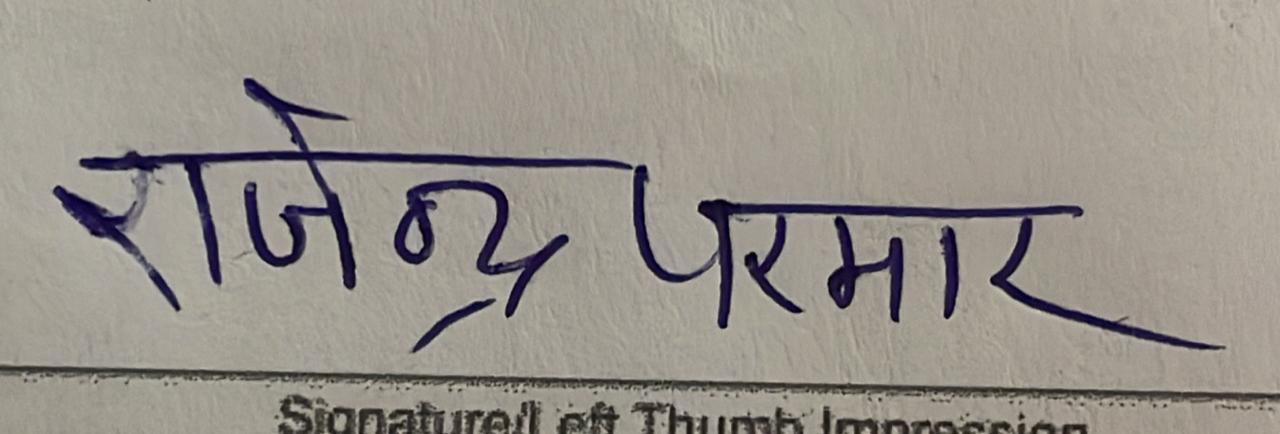 राजेन्द्र परमार
Signature/Left Thumb Impression